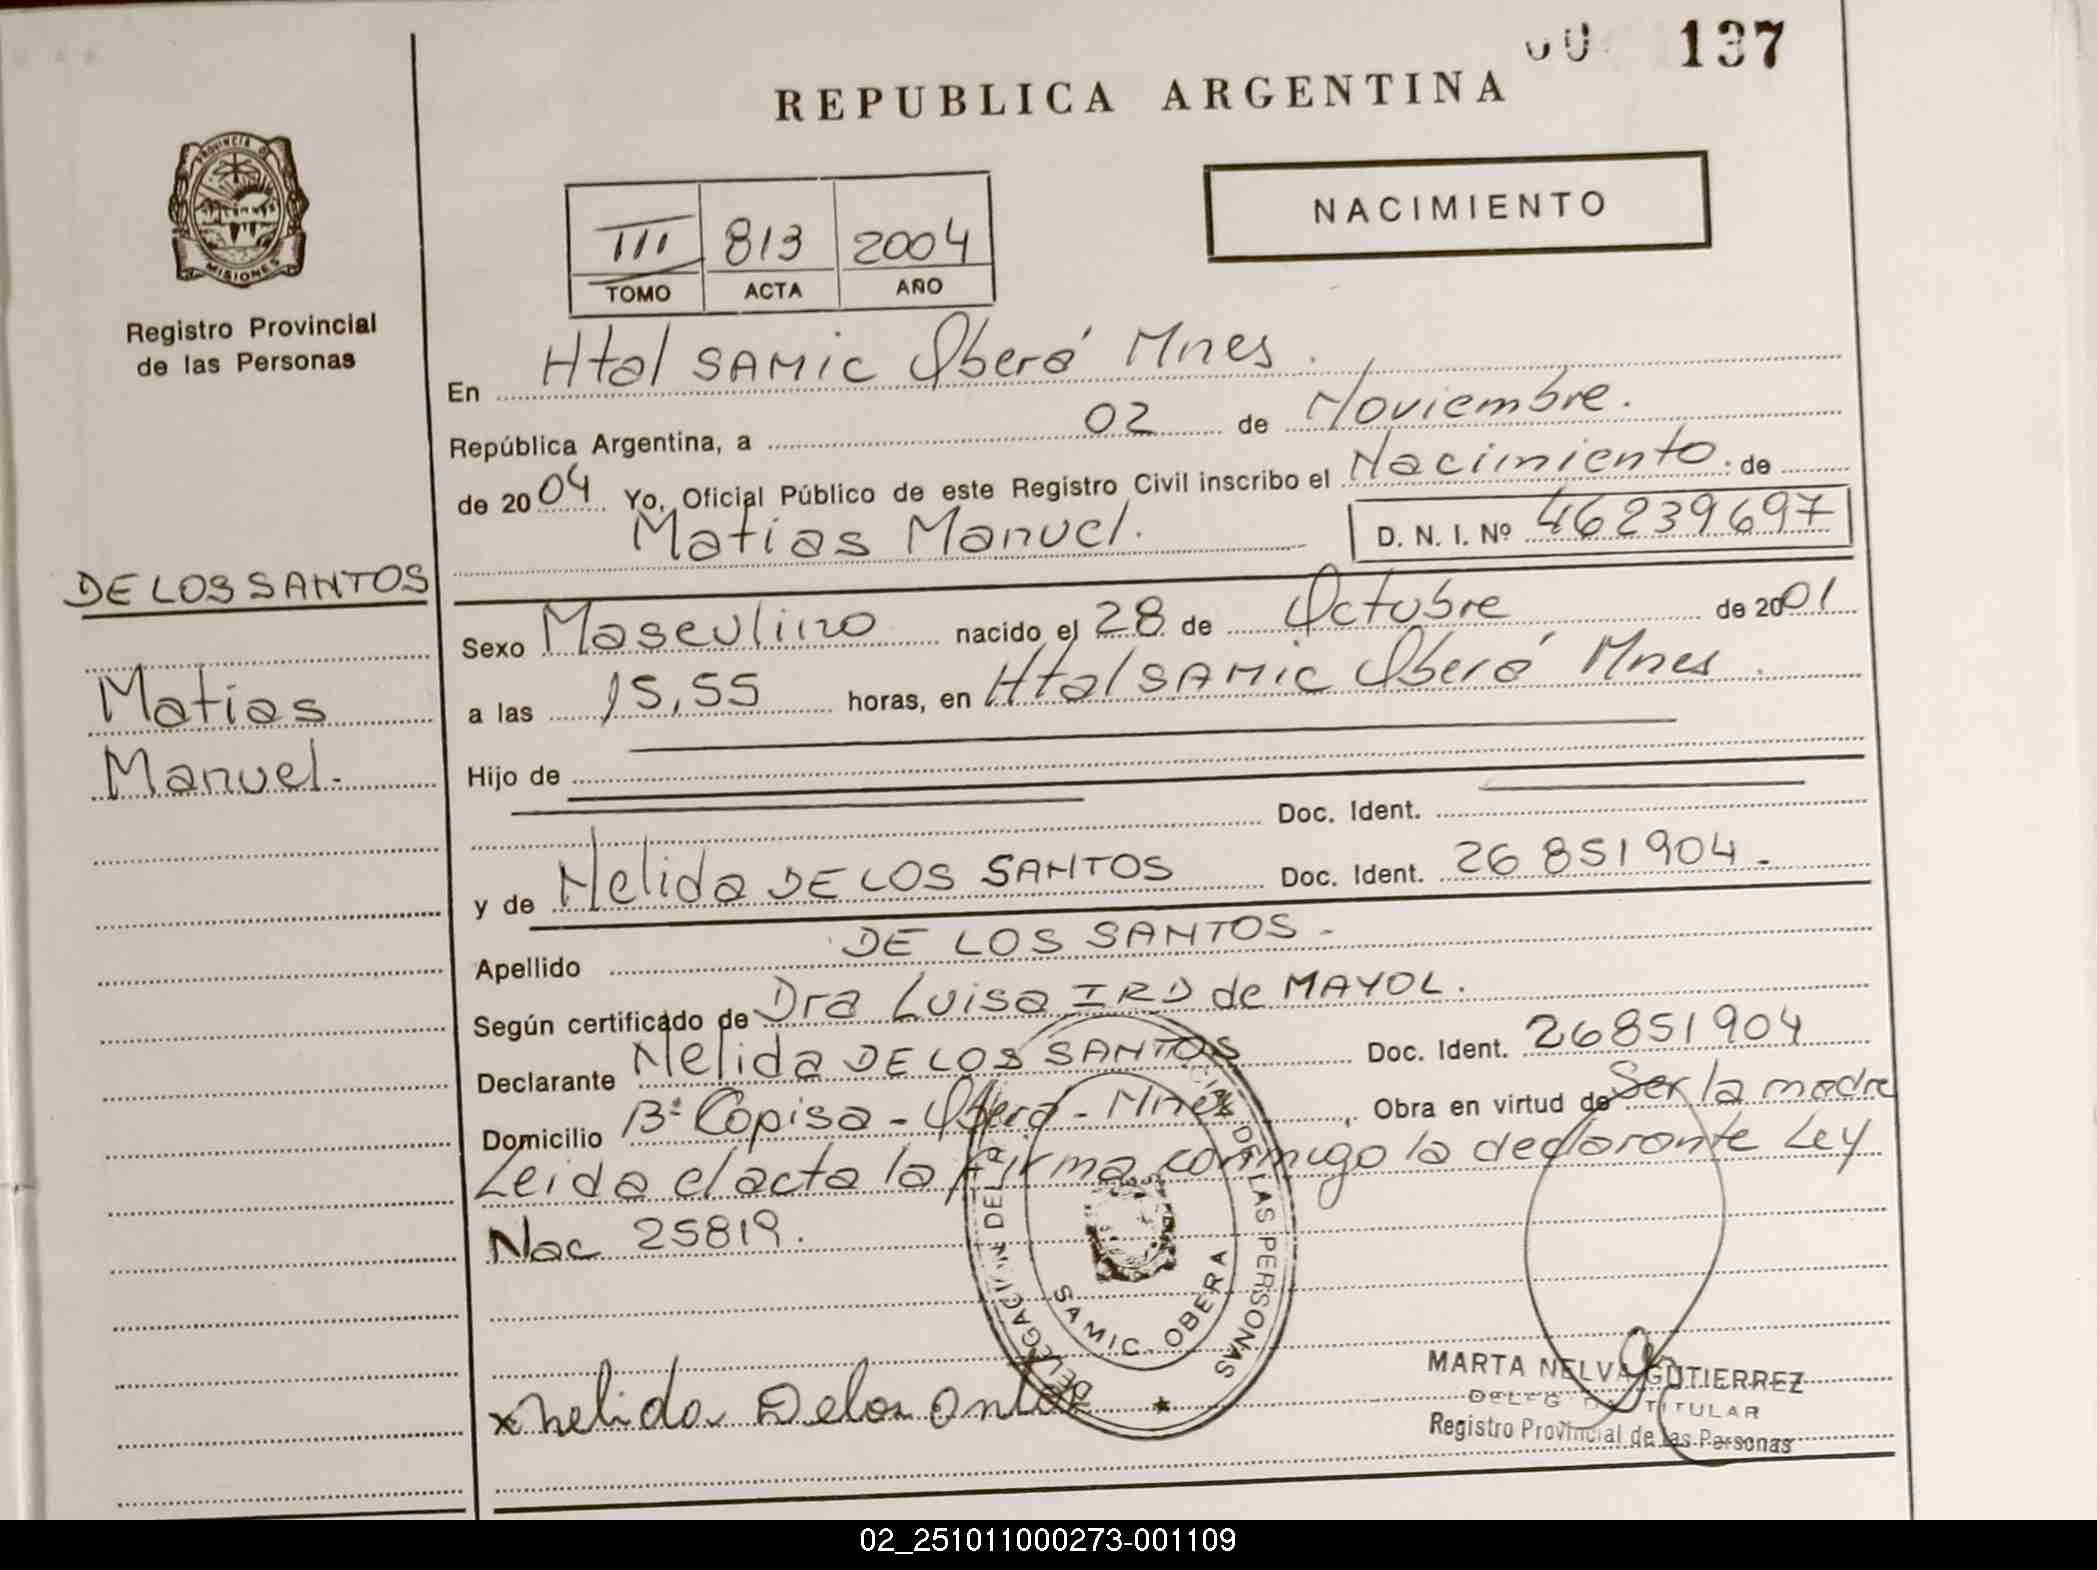 137
REPUBLICA ARGENTINA
NACIMIENTO
PROVINCIA DE
MISIONES
Registro Provincial
de las Personas
III 813 2004
TOMO ACTA AÑO
En Htal SAMIC Oberá Mnes.
República Argentina, a 02 de Noviembre.
de 2004 Yo, Oficial Público de este Registro Civil inscribo el Nacimiento. de
Matias Manuel.
D. N. I. Nº 46239697
DE LOS SANTOS
Matias
Manuel.-
Sexo Masculino nacido el 28 de Octubre de 2001
a las 15,55 horas, en Htal SAMIC Oberá Mnes.
Hijo de
Doc. Ident.
y de Nelida DE LOS SANTOS Doc. Ident. 26 851904.-
Apellido DE LOS SANTOS-
Según certificado de Dra Luisa IRD de MAYOL.
Declarante Nelida DE LOS SANTOS Doc. Ident. 26851904
Domicilio Bº Copisa - Oberá - Mnes , Obra en virtud de Ser la madre
Leida el acta la firma conmigo la declarante Ley
Nac 25819.
DELEGACION DEL DE LAS PERSONAS
SAMIC. OBERA
x nelida
MARTA NELVA GUTIERREZ
TITULAR
Registro Provincial de las Personas
02_251011000273-001109